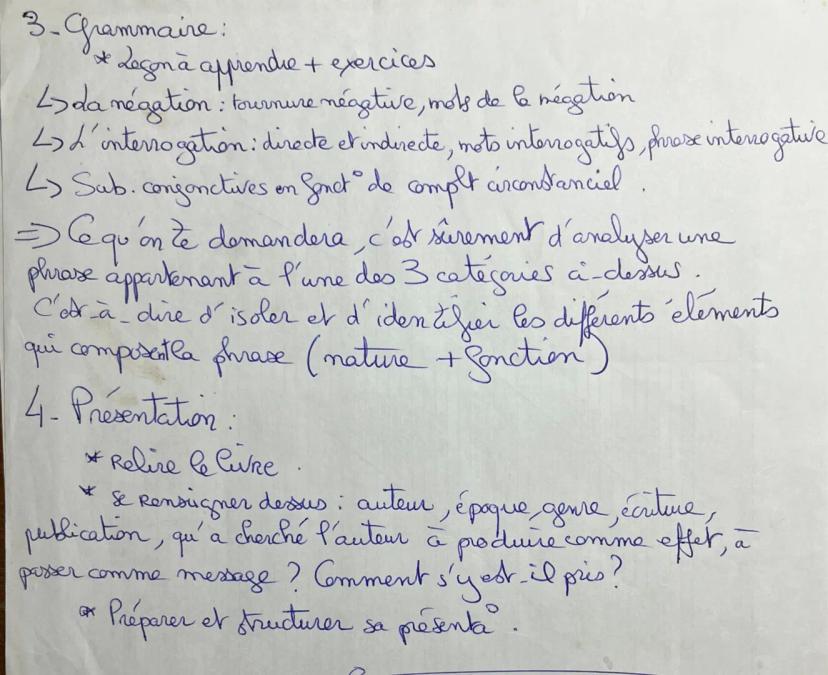 3- Grammaire :
* Leçon à apprendre + exercices
↳ La négation : tournure négative, mots de la négation
↳ L'interrogation : directe et indirecte, mots interrogatifs, phrase interrogative
↳ Sub. conjonctives en fonct° de complt circonstanciel.
=> Ce qu'on te demandera, c'est sûrement d'analyser une
phrase appartenant à l'une des 3 catégories ci-dessus.
C'est-à-dire d'isoler et d'identifier les différents éléments
qui composent la phrase (nature + fonction)
4- Présentation :
* Relire le livre.
* Se renseigner dessus : auteur, époque, genre, écriture,
publication, qu'a cherché l'auteur à produire comme effet, à
passer comme message ? Comment s'y est-il pris ?
* Préparer et structurer sa présenta°.